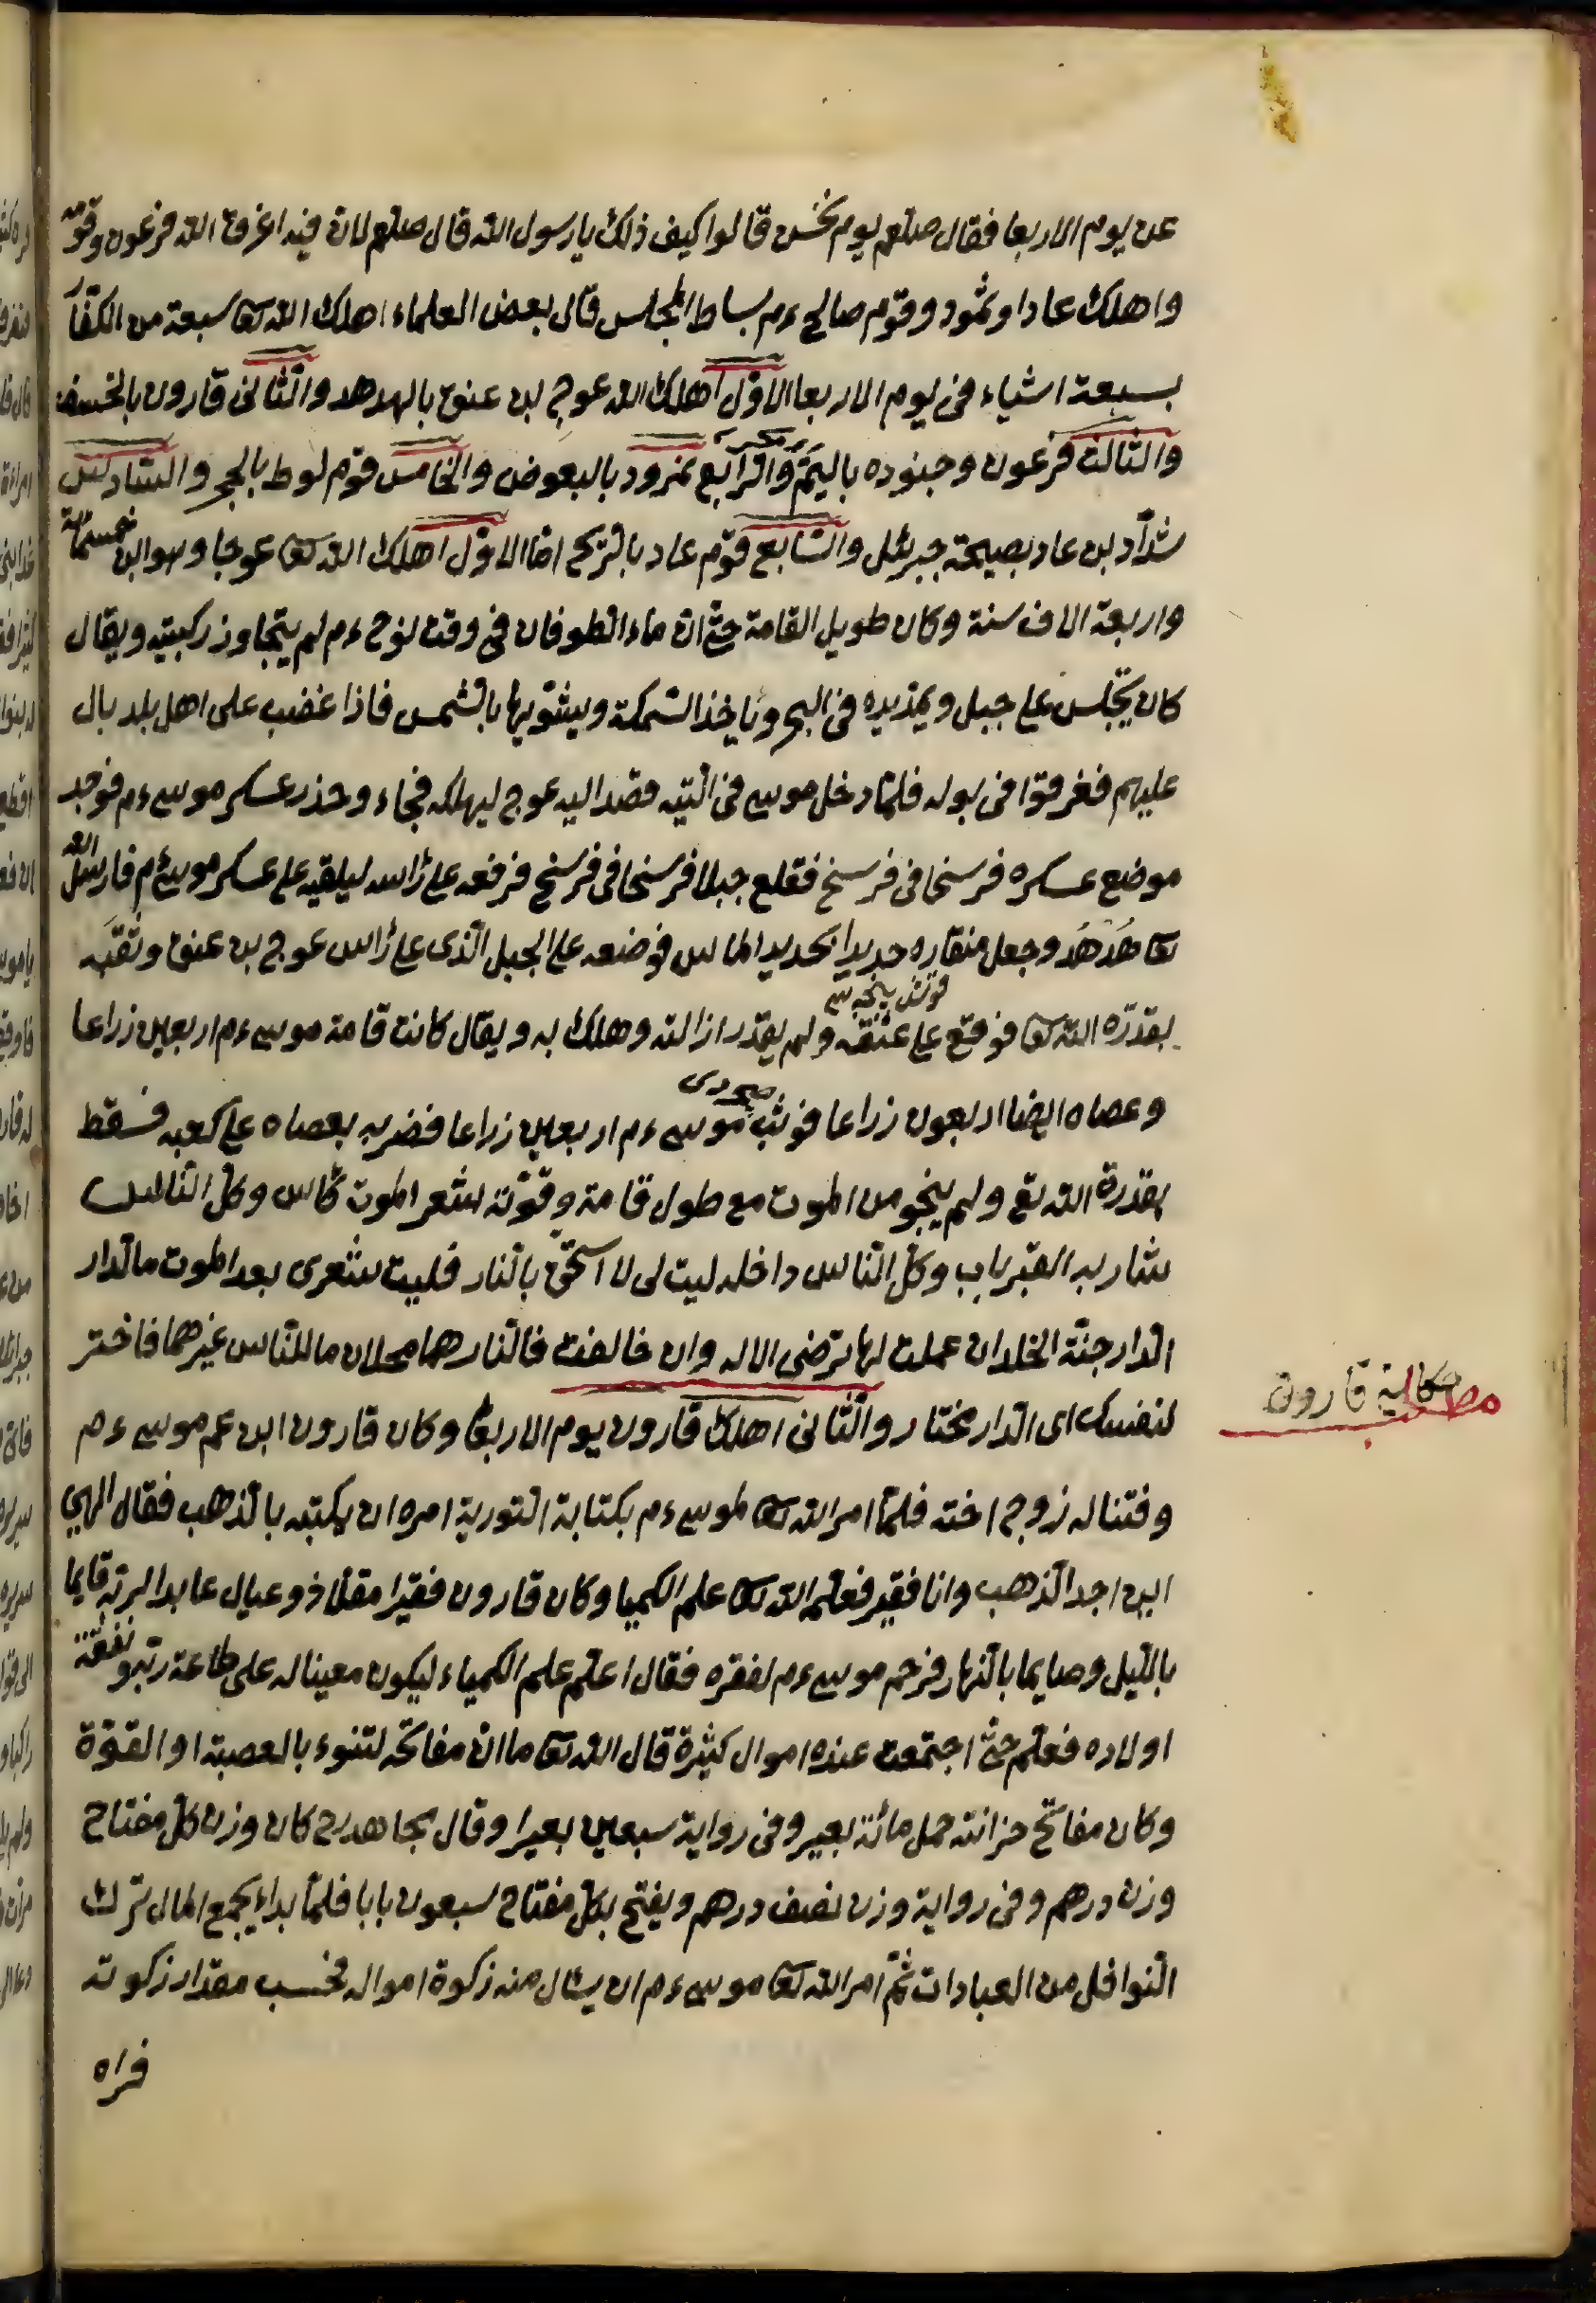 عن يوم الاربعا فقال صلعم يوم نحس قالوا كيف ذلك يا رسول الله قال صلعم لان فيه اغرق الله فرعون وقومه
واهلك عادا وثمود وقوم صالح ءم بساط المجلس قال بعض العلماء اهلك الله تعا سبعة من الكفار
بسبعة اشياء فى يوم الاربعا الاول اهلك الله عوج بن عنق بالهدهد والثانى قارون بالخسف
والثالث فرعون وجنوده باليم والرابع نمرود بالبعوض والخامس قوم لوط بالحجر والسادس
شداد بن عاد بصيحة جبرئل والسابع قوم عاد بالريح اما الاول اهلك الله تعا عوجا وهو ابن خمسمائة
واربعة الاف سنة وكان طويل القامة حتى ان ماء الطوفان فى وقت نوح ءم لم يتجاوز ركبتيه ويقال
كان يجلس على جبل ويمد يده فى البحر وياخذ السمكة ويشويها بالشمس فاذا غضب على اهل بلد بال
عليهم فغرقوا فى بوله فلما دخل موسى فى التيه قصد اليه عوج ليهلكه فجاء وحذر عسكر موسى ءم فوجد
موضع عسكره فرسخا فى فرسخ فقلع جبلا فرسخا فى فرسخ فرفعه على رأسه ليلقيه على عسكر موسى ءم فارسل الله
تعا هدهد وجعل منقاره حديدا كحديد الماس فوضعه على الجبل الذى على رأس عوج بن عنق وثقبه
بقدرة الله تعا فوقع على عنقه ولم يقدر ازالته وهلك به ويقال كانت قامة موسى ءم اربعين زراعا
وعصاه ايضا اربعون زراعا فوثب موسى ءم اربعين زراعا فضربه بعصاه على كعبه فسقط
بقدرة الله تع ولم ينجو من الموت مع طول قامة وقوته شعر الموت كأس وكل الناس
شاربه القبر باب وكل الناس داخله ليت لى لا استحق بالنار فليت شعرى بعد الموت ما الدار
الدار جنة الخلد ان عملت لها ترضى الاله وان خالفت فالنار هما محلان ما للناس غيرهما فاختر
لنفسك اى الدار مختار والثانى اهلك قارون يوم الاربعا وكان قارون ابن عم موسى ءم
وفتنا له زوج اخته فلما امر الله تعا لموسى ءم بكتابة التورية امره ان يكتبه بالذهب فقال الهي
اين اجد الذهب وانا فقير فعلم الله تعا علم الكميا وكان قارون فقيرا مقلا ذو عيال عابدا لربه قايما
بالليل وصايما بالنهار فرحم موسى ءم لفقره فقال اعلم علم الكمياء ليكون معينا له على طاعة ربه ونفقة
اولاده فعلم حتى اجتمعت عنده اموال كثيرة قال الله تعا ما ان مفاتحه لتنوء بالعصبة او القوة
وكان مفاتح خزانته حمل مائة بعير وفى رواية سبعين بعيرا وقال مجاهد رح كان وزن كل مفتاح
وزن درهم وفى رواية وزن نصف درهم ويفتح بكل مفتاح سبعون بابا فلما بداء يجمع المال ترك
النوافل من العبادات ثم امر الله تعا موسى ءم ان يسئال منه زكوة اموال فحسب مقدار زكوته
فراه
مطلب حكاية قارون